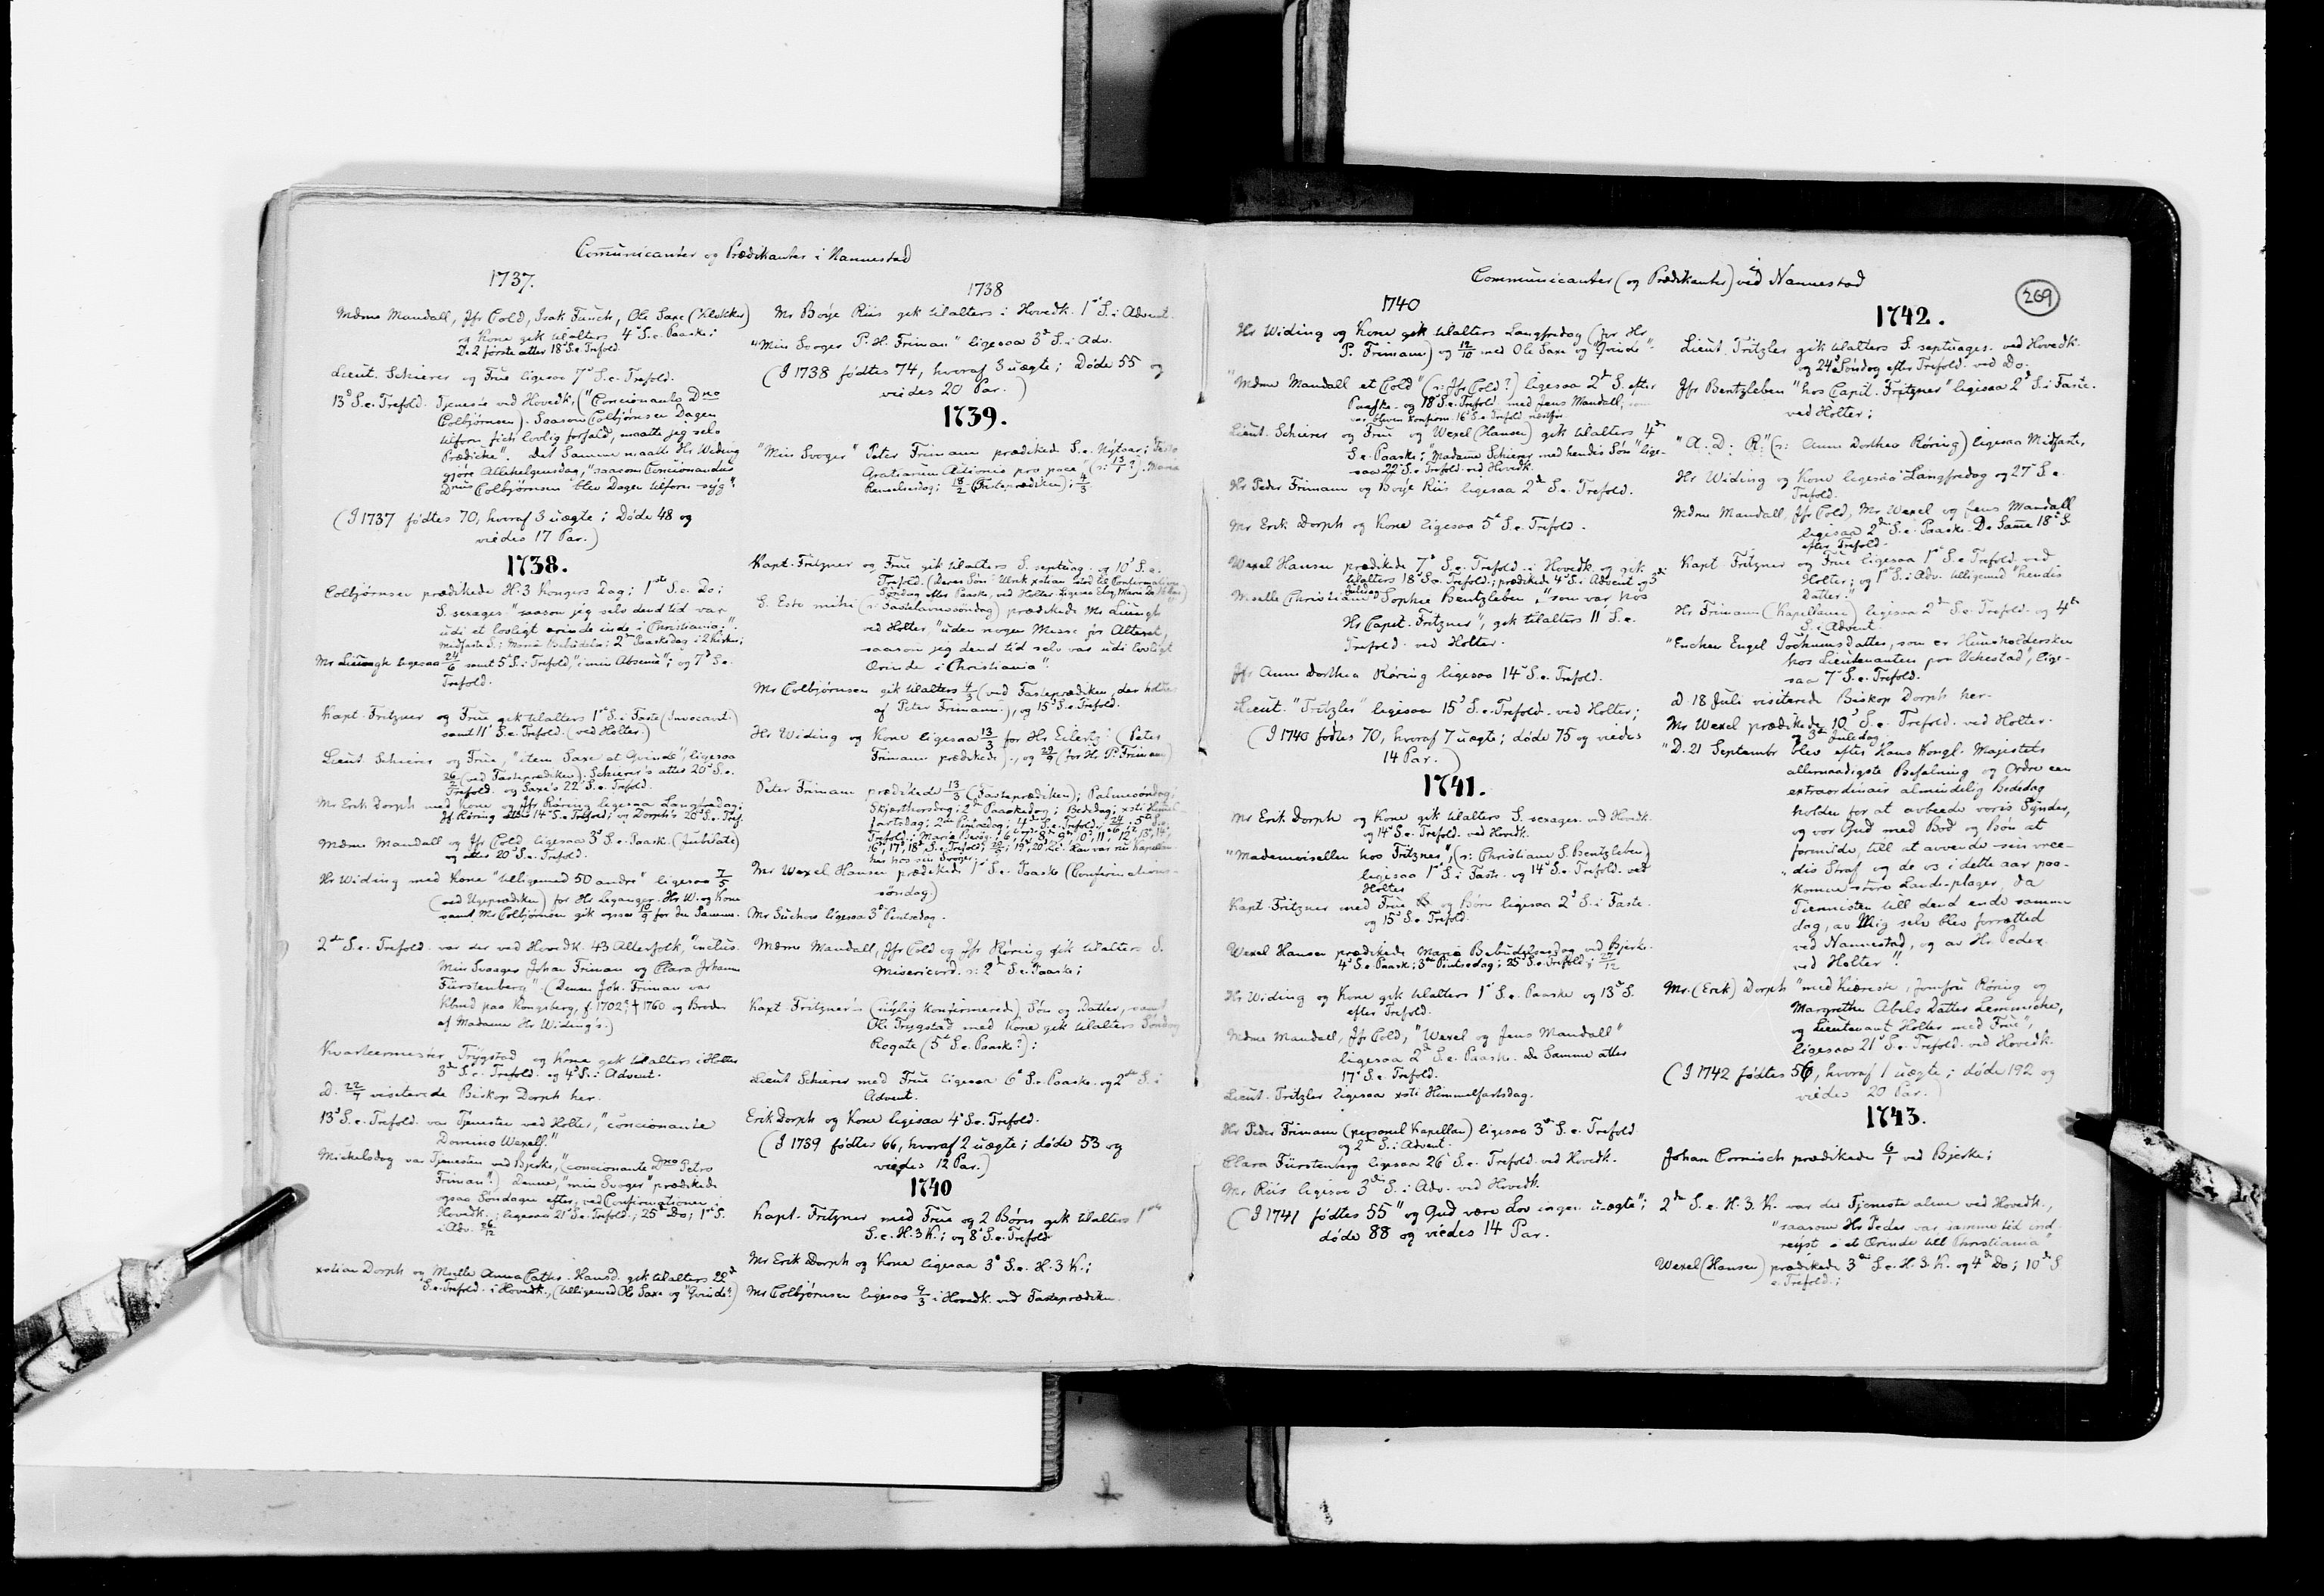 Communicanter og Prædikanter i Nannestad
1737.
Mdme Mandall, Jfr Cold, Isak Fanch, Ole Saxe (Klokker)
og Kone gik tilalters 4d S. e. Paaske;
De 2 første atter 18d S. e. Trefold.
Lieut. Schierer og Frue ligesaa 7d S. e. Trefold.
13d S. e. Trefold. Tjeneste ved Hovedk. ("Concionante Dno
Colbjørnsen). Saasom Colbjørnsen Dagen
tilforn fich lovlig forfald, maatte jeg selv
Prædicke". Det Samme maatte Hr Widing
gjøre Allehelgensdag, "saasom Concionandus
Dnus Colbjørnsen blev Dagen tilforn syg".
(I 1737 fødtes 70, hvoraf 3 uægte; Døde 48 og
viedes 17 Par.)
1738.
Colbjørnsen prædikede H. 3 Kongers Dag; 1ste S. e. Do;
S. sexages. "saasom jeg selv dend tid var
udi et lovligt ærinde inde i Christiania".
Midfaste S.; Mariæ Bebudelse; 2den Paaskedag i 2 Kirker;
Mr Liungh ligesaa 24/6 samt 5d S. i Trefold, "i min Absence"; og 7d S. e.
Trefold.
Kapt. Fritzner og Frue gik tilalters 1d S. i Faste (Invocavit)
samt 11d S. e. Trefold. (ved Holter.)
Lieut. Schierer og Frue, "item Saxe et Qvinde", ligesaa
26/2 (ved Fasteprædiken). Schierer's atter 20d S. e.
Trefold. og Saxe's 22d S. e. Trefold.
Mr Erik Dorph med Kone og Jfr Røring ligesaa Langfredag;
Jf. Røring atter 14d S. e. Trefold; og Dorph's 20d S. e. Tref.
Mdme Mandall og Jfr Cold ligesaa 3d S. e. Paask. (Jubilate)
og atter 20d S. e. Trefold.
Hr Widing med Kone "tilligemed 50 andre" ligesaa 7/5
(ved Ugeprædiken) for Hr Leganger. Hr W. og Kone
samt Mr Colbjørnsen gik ogsaa 10/9 for den Samme.
2den S. e. Trefold. var der ved Hovedk. 43 Alterfolk, "inclus.
Min Svoager Johan Friman og Clara Johanne
Fürstenberg". (Denne Joh. Friman var
Kbmd paa Kongsberg, f. 1702?, † 1760 og Broder
af Madame Hr Widing's.)
Kvarteermester Trygstad og Kone gik tilalters i Holter
3die S. e. Trefold. og 4d S. i Advent.
d. 22/7 visiterede Biskop Dorph her.
13d S. e. Trefold. var Tjenesten ved Holter, "concionante
Domino Wexell."
Michelsdag var Tjenesten ved Bjerke, "(concionante Dno Petro
Friman".) denne, "min Svoger" prædikede
ogsaa Søndagen efter, ved Confirmationen i
Hovedk.; ligesaa 21d S. e. Trefold.; 25d Do; 1ste S.
i Adv. 26/12
xstian Dorph og Mselle Anna Cathr. Hansd. gik tilalters 22d
S. e. Trefold. i Hovedk., (tilligemed Ole Saxe og "Qvinde".)
1738
Mr Børje Riis gik tilalters i Hovedk. 1d S. i Advent.
"Min Svoger P. H. Friman" ligesaa 3d S. i Adv.
(I 1738 fødtes 74, hvoraf 3 uægte; Døde 55 og
viedes 20 Par.)
1739.
"Min Svoger" Peter Frimann prædikede S. e. Nytaar; Festo
Gratiarum Actionis pro pace" (ɔ: 13/1 ?); Mariæ
Renselsesdag; 18/2 (Fasteprædiken); 4/3
Kapt. Fritzner og Frue gik tilalters S. septuag. og 10d S. e.
Trefold. (Deres Søn
Søndag efter Paaske, ved Holter.
S. Esto mihi (ɔ: Fastelavnssøndag) prædikede Mr Liungh
ved Holter "uden nogen Messe for Alteret,
saasom jeg dend tid selv var udi lovligt
Ærinde i Christiania".
Mr Colbjørnsen gik tilalters 4/3 (ved Fasteprædiken, der holdtes
af Peter Frimann), og 15d S. e. Trefold.
Hr Widing og Kone ligesaa 13/3 for Hr Eilertz (Peter
Frimann prædikede), og 29/9 (for Hr P. Friman)
Peter Frimann prædikede 13/3 (Fasteprædiken); Palmesøndag;
Skjærthorsdag; 2den Paaskedag; Bededag; xsti Himmel-
fartsdag; 2den Pintsedag; 4de S. e. Trefold.; 24/6; 5d S. e.
Trefold.; Mariæ Besøg.; 6d, 7d, 8d, 9d, 10d, 11d, 12d, 13d, 14d,
16d, 17d, 18d S. e. Trefold; 29/9; 19d, 20d, 22d. Han var nu Kapellan
her hos sin Svoger.
Mr Wexel Hansen prædikede 1d S. e. Paaske (Confirmations-
søndag.)
Mr Suchow ligesaa 3d Pintsedag.
Mdme Mandall, Jfr Cold og Jfr Røring gik tilalters S.
Misericord. ɔ: 2den S. e. Paaske;
Kapt Fritzner's (nylig konfirmerede) Søn og Datter, samt
Ole Trygstad med Kone gik tilalters Søndag
Rogate (5d S. e. Paask.?);
Lieut Schierer med Frue ligesaa 6d S. e. Paaske og 2den S. i
Advent.
Erik Dorph og Kone ligesaa 4d S. e. Trefold.
(I 1739 fødtes 66, hvoraf 2 uægte; døde 53 og
viedes 12 Par.)
1740
Kapt. Fritzner med Frue og 2 Børn gik tilalters 1ste
S. e. H. 3 K.; og 8d S. e. Trefold
Mr Erik Dorph og Kone ligesaa 3d S. e. H. 3 K.;
Mr Colbjørnsen ligesaa 9/3 i Hovedk. ved Fasteprædiken.
Communicanter (og Prædikanter) ved Nannestad
269
1740
Hr Widing og Kone gik tilalters Langfredag (for Hr
P. Frimann) og 12/10 med Ole Saxe og "Qvinde".
"Mdme Mandall et Cold" (ɔ: Jfr Cold?) ligesaa 2d S. efter
Paaske og 18d S. e. Trefold. med Jens Mandall, som
var bleven konfirm. 16d S. e. Trefold næstfør.
Lieut. Schierer og Frue og Wexel (Hansen) gik tilalters 4de
S. e. Paaske; "Madame Schierer med hendis Søn" lige-
saa 22d S. e. Trefold. ved Hovedk.
Hr Peder Frimann og Børje Riis ligesaa 2de S. e. Trefold.
Mr Erik Dorph og Kone ligesaa 5d S. e. Trefold.
Wexel Hansen prædikede 7d S. e. Trefold. i Hovedk. og gik
tilalters 18d S. e. Trefold.; prædikede 4d S. i Advent og 3de
Juledag
Mselle Christiane Sophie Bentzleben, "som var hos
Hr Capit. Fritzner", gik tilalters 11d S. e.
Trefold. ved Holter.
Jfr Anne Dorthea Røring ligesaa 14d S. e. Trefold.
Lieut. "Tritzler" ligesaa 15d S. e. Trefold. ved Holter;
(I 1740 fødtes 70, hvoraf 7 uægte; døde 75 og viedes
14 Par.)
1741.
Mr Erik Dorph og Kone gik tilalters S. sexages. ved Hovedk.
og 14d S. e. Trefold. ved Hovedk.
"Mademoisellen hos Fritzner", (ɔ: Christiane S. Bentzleben)
ligesaa 1d S. i Faste og 14d S. e. Trefold. ved
Holter
Kapt. Fritzner med Frue og Børn ligesaa 2d S. i Faste.
og 15d S. e. Trefold.
Wexel Hansen prædikede Mariæ Bebudelsesdag ved Bjerke.
4d S. e. Paask; 3die Pintsedag; 25d S. e. Trefold.; 27/12
Hr Widing og Kone gik tilalters 1d S. e. Paaske og 13d S.
efter Trefold.
Mdme Mandall, Jfr Cold, "Wexel og Jens Mandall"
ligesaa 2d S. e. Paask. De Samme atter
17d S. e. Trefold.
Lieut. Tritzler ligesaa xsti Himmelfartsdag.
Hr Peder Frimann (personel Kapellan) ligesaa 3die S. e. Trefold
og 2den S. i Advent.
Clara Fürstenberg ligesaa 26d S. e. Trefold. ved Hovedk.
Mr Riis ligesaa 3die S. i Adv. ved Hovedk.
(I 1741 fødtes 55 "og Gud være Lov ingen uægte";
døde 88 og viedes 14 Par.
1742.
Lieut. Tritzler gik tilalters S. septuages. ved Hovedk.
og 24d Søndag efter Trefold. ved Do.
Jfr Bentzleben "hos Capit. Fritzner" ligesaa 2d S. i Faste.
ved Holter;
"A. D. R." (ɔ: Anne Dorthea Røring) ligesaa Midfaste,
Hr Widing og Kone ligesaa Langfredag og 27d S. e.
Trefold.
Mdme Mandall, Jfr Cold, Mr Wexel og Jens Mandall
ligesaa 2den S. e. Paaske. De Samme 18d S.
efter Trefold.
Kapt Fritzner og Frue ligesaa 1d S. e. Trefold. ved
Holter; og 1d S. i Adv. tilligemed "hendis
datter."
Hr Frimann (Kapellanen) ligesaa 2den S. e. Trefold. og 4de
S. i Advent.
"Enchen Engel Jochumsdatter, som er Huusholdersken
hos Lieutenanten paa Uchestad", lige-
saa 7d S. e. Trefold.
d. 18 Juli visiterede Biskop Dorph her.
Mr Wexel prædikede 10d S. e. Trefold. ved Holter.
og 3die Juledag
"D. 21 Septembr blev efter Hans Kongl. Majestets
allernaadigste Befalning og Ordre een
extraordinair almindelig Bededag
holden for at avbeede voris Synder,
og vor Gud med Bod og Bøn at
formilde, till at avvende sin vree-
dis Straf og de os i dette aar paa-
komne store Lands-plager, da
Tiennisten till dend ende samme
dag, av Mig selv blev forrætted
ved Nannestad, og av Hr. Peder
ved Holter".
Mr. (Erik) Dorph "med Kiæreste, Jomfru Røring og
Margrethe Abels Datter Lemmiche,
og Lieutenant Holter med Frue",
ligesaa 21d S. e. Trefold. ved Hovedk.
(I 1742 fødtes 56, hvoraf 1 uægte; døde 192 og
viedes 20 Par.)
1743.
Johan Cornisch prædikede 6/1 ved Bjerke;
2den S. e. H. 3. K. var der Tjeneste alene ved Hovedk.,
"saasom Hr Peder var samme tid ind-
reyst i et Ærinde till Christiania"
Wexel (Hansen) prædikede 3die S. e. H. 3. K. og 4de Do; 10de S
e. Trefold.;